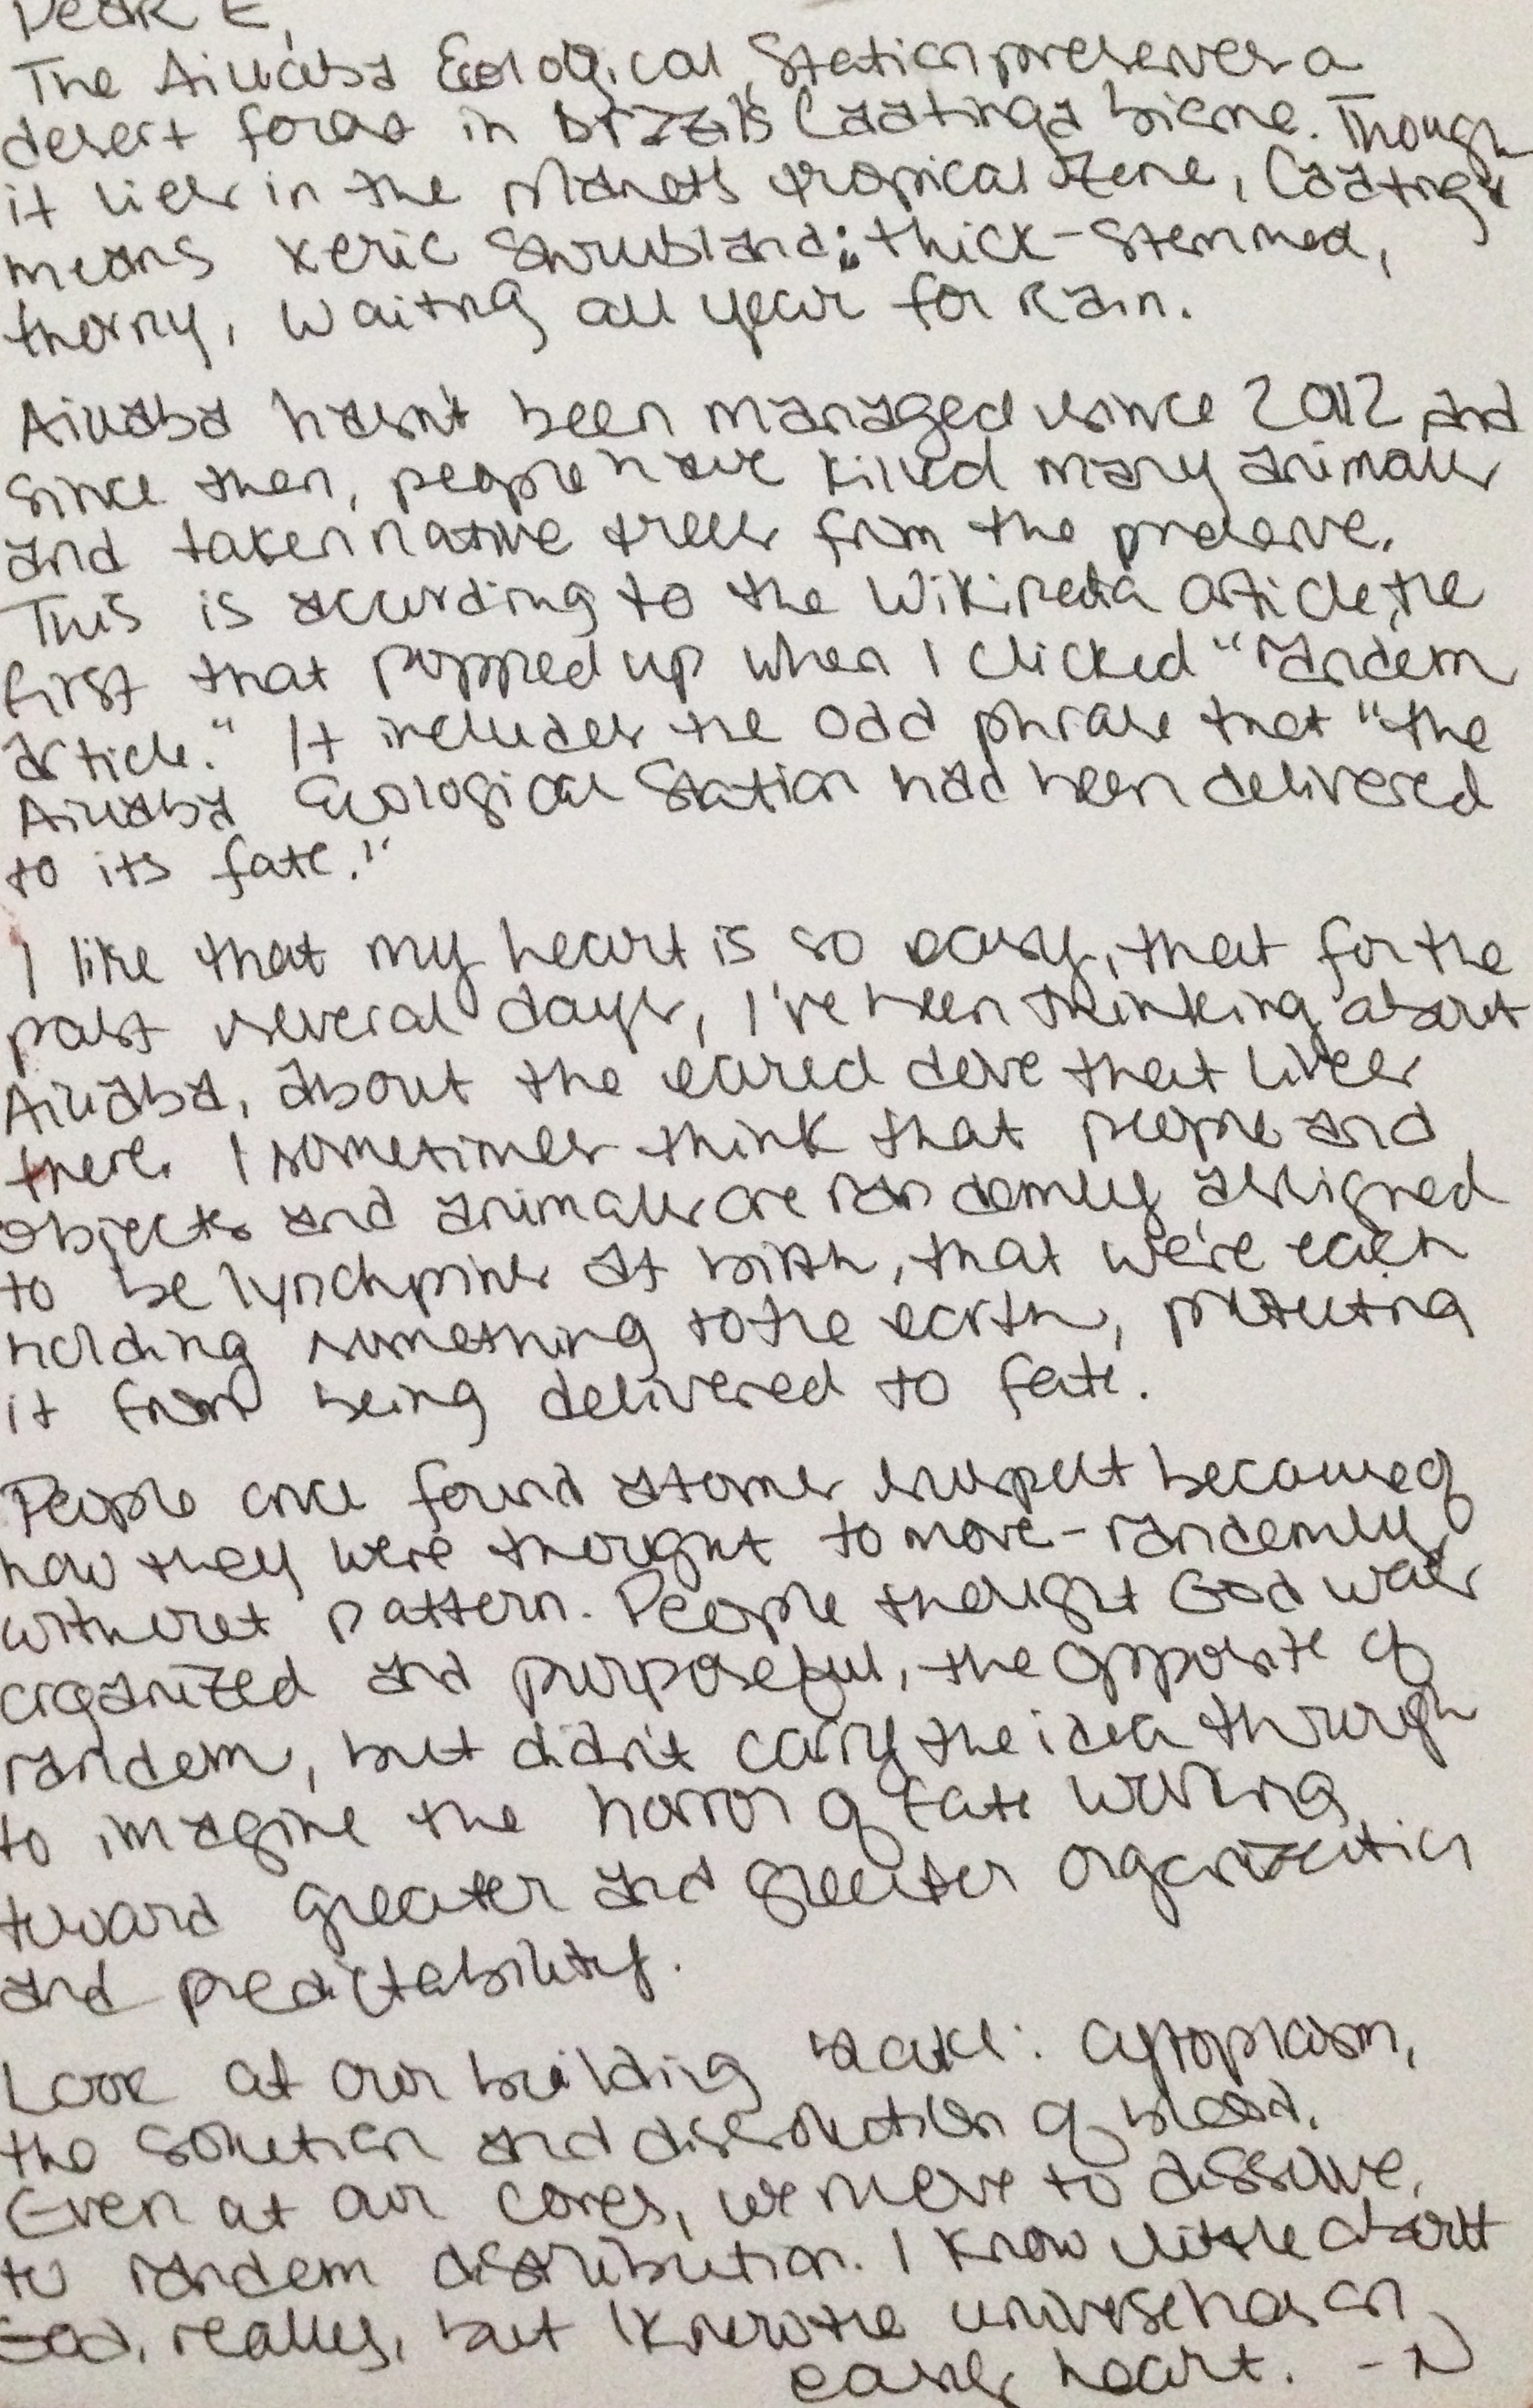 Dear E,
The Aiuaba Ecological Station preserves a
desert forest in Brazil's Caatinga biome. Though
it lies in the planet's tropical zone, Caatinga
means xeric shrubland: thick-stemmed,
thorny, waiting all year for rain.
Aiuaba hasn't been managed since 2012 and
since then, people have killed many animals
and taken native trees from the preserve.
This is according to the Wikipedia article, the
first that popped up when I clicked "random
article." It includes the odd phrase that "the
Aiuaba Ecological Station had been delivered
to its fate."
I like that my heart is so easy, that for the
past several days, I've been thinking about
Aiuaba, about the eared dove that lives
there. I sometimes think that people and
objects and animals are randomly assigned
to be lynchpins at birth, that we're each
holding something to the earth, protecting
it from being delivered to fate.
People once found atoms suspect because of
how they were thought to move - randomly,
without pattern. People thought God was
organized and purposeful, the opposite of
random, but didn't carry the idea through
to imagine the horror of fate working
toward greater and greater organization
and predictability.
Look at our building : cytoplasm,
the solution and dissolution of blood.
Even at our cores, we move to dissolve,
to random distribution. I know little about
God, really, but I know the universe has an
easy heart. - N